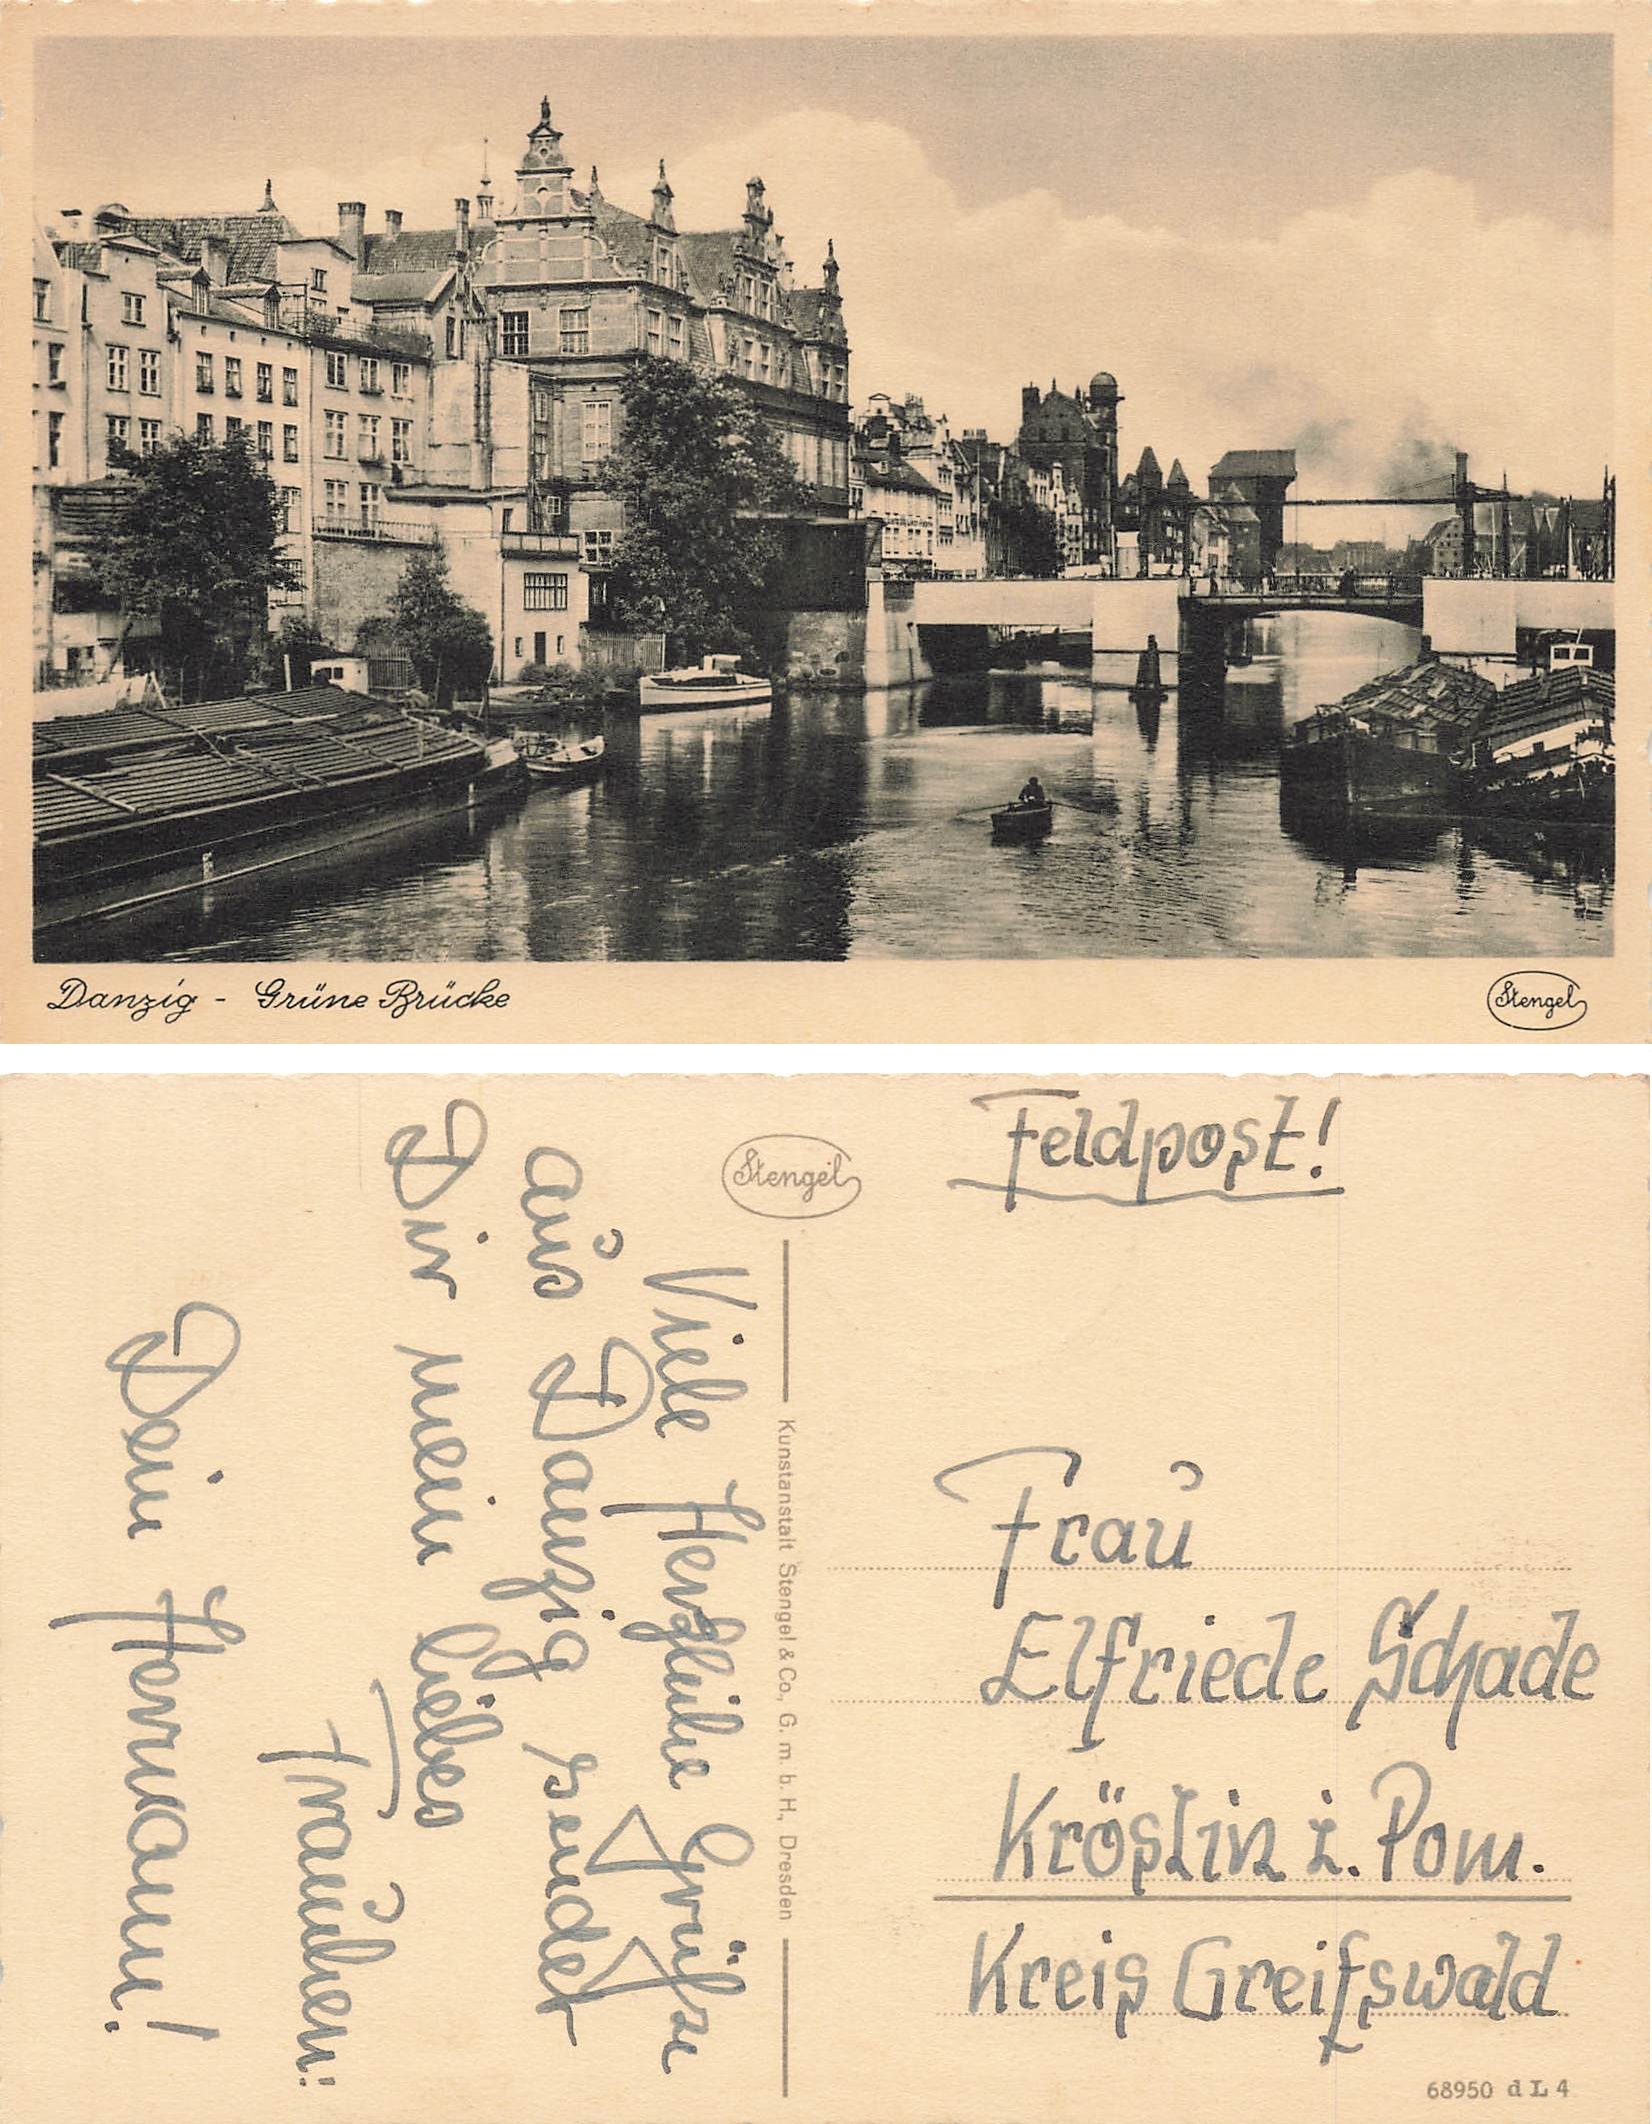 Danzig - Grüne Brücke
Stengel
Stengel
Feldpost!
Viele Herzliche Grüße
aus Danzig sendet
Dir mein liebes
Frauchen:
Dein Hermann!
Kunstanstalt Stengel & Co., G. m. b. H., Dresden
Frau
Elfriede Schade
Kröslin i. Pom.
Kreis Greifswald
68950 d L 4